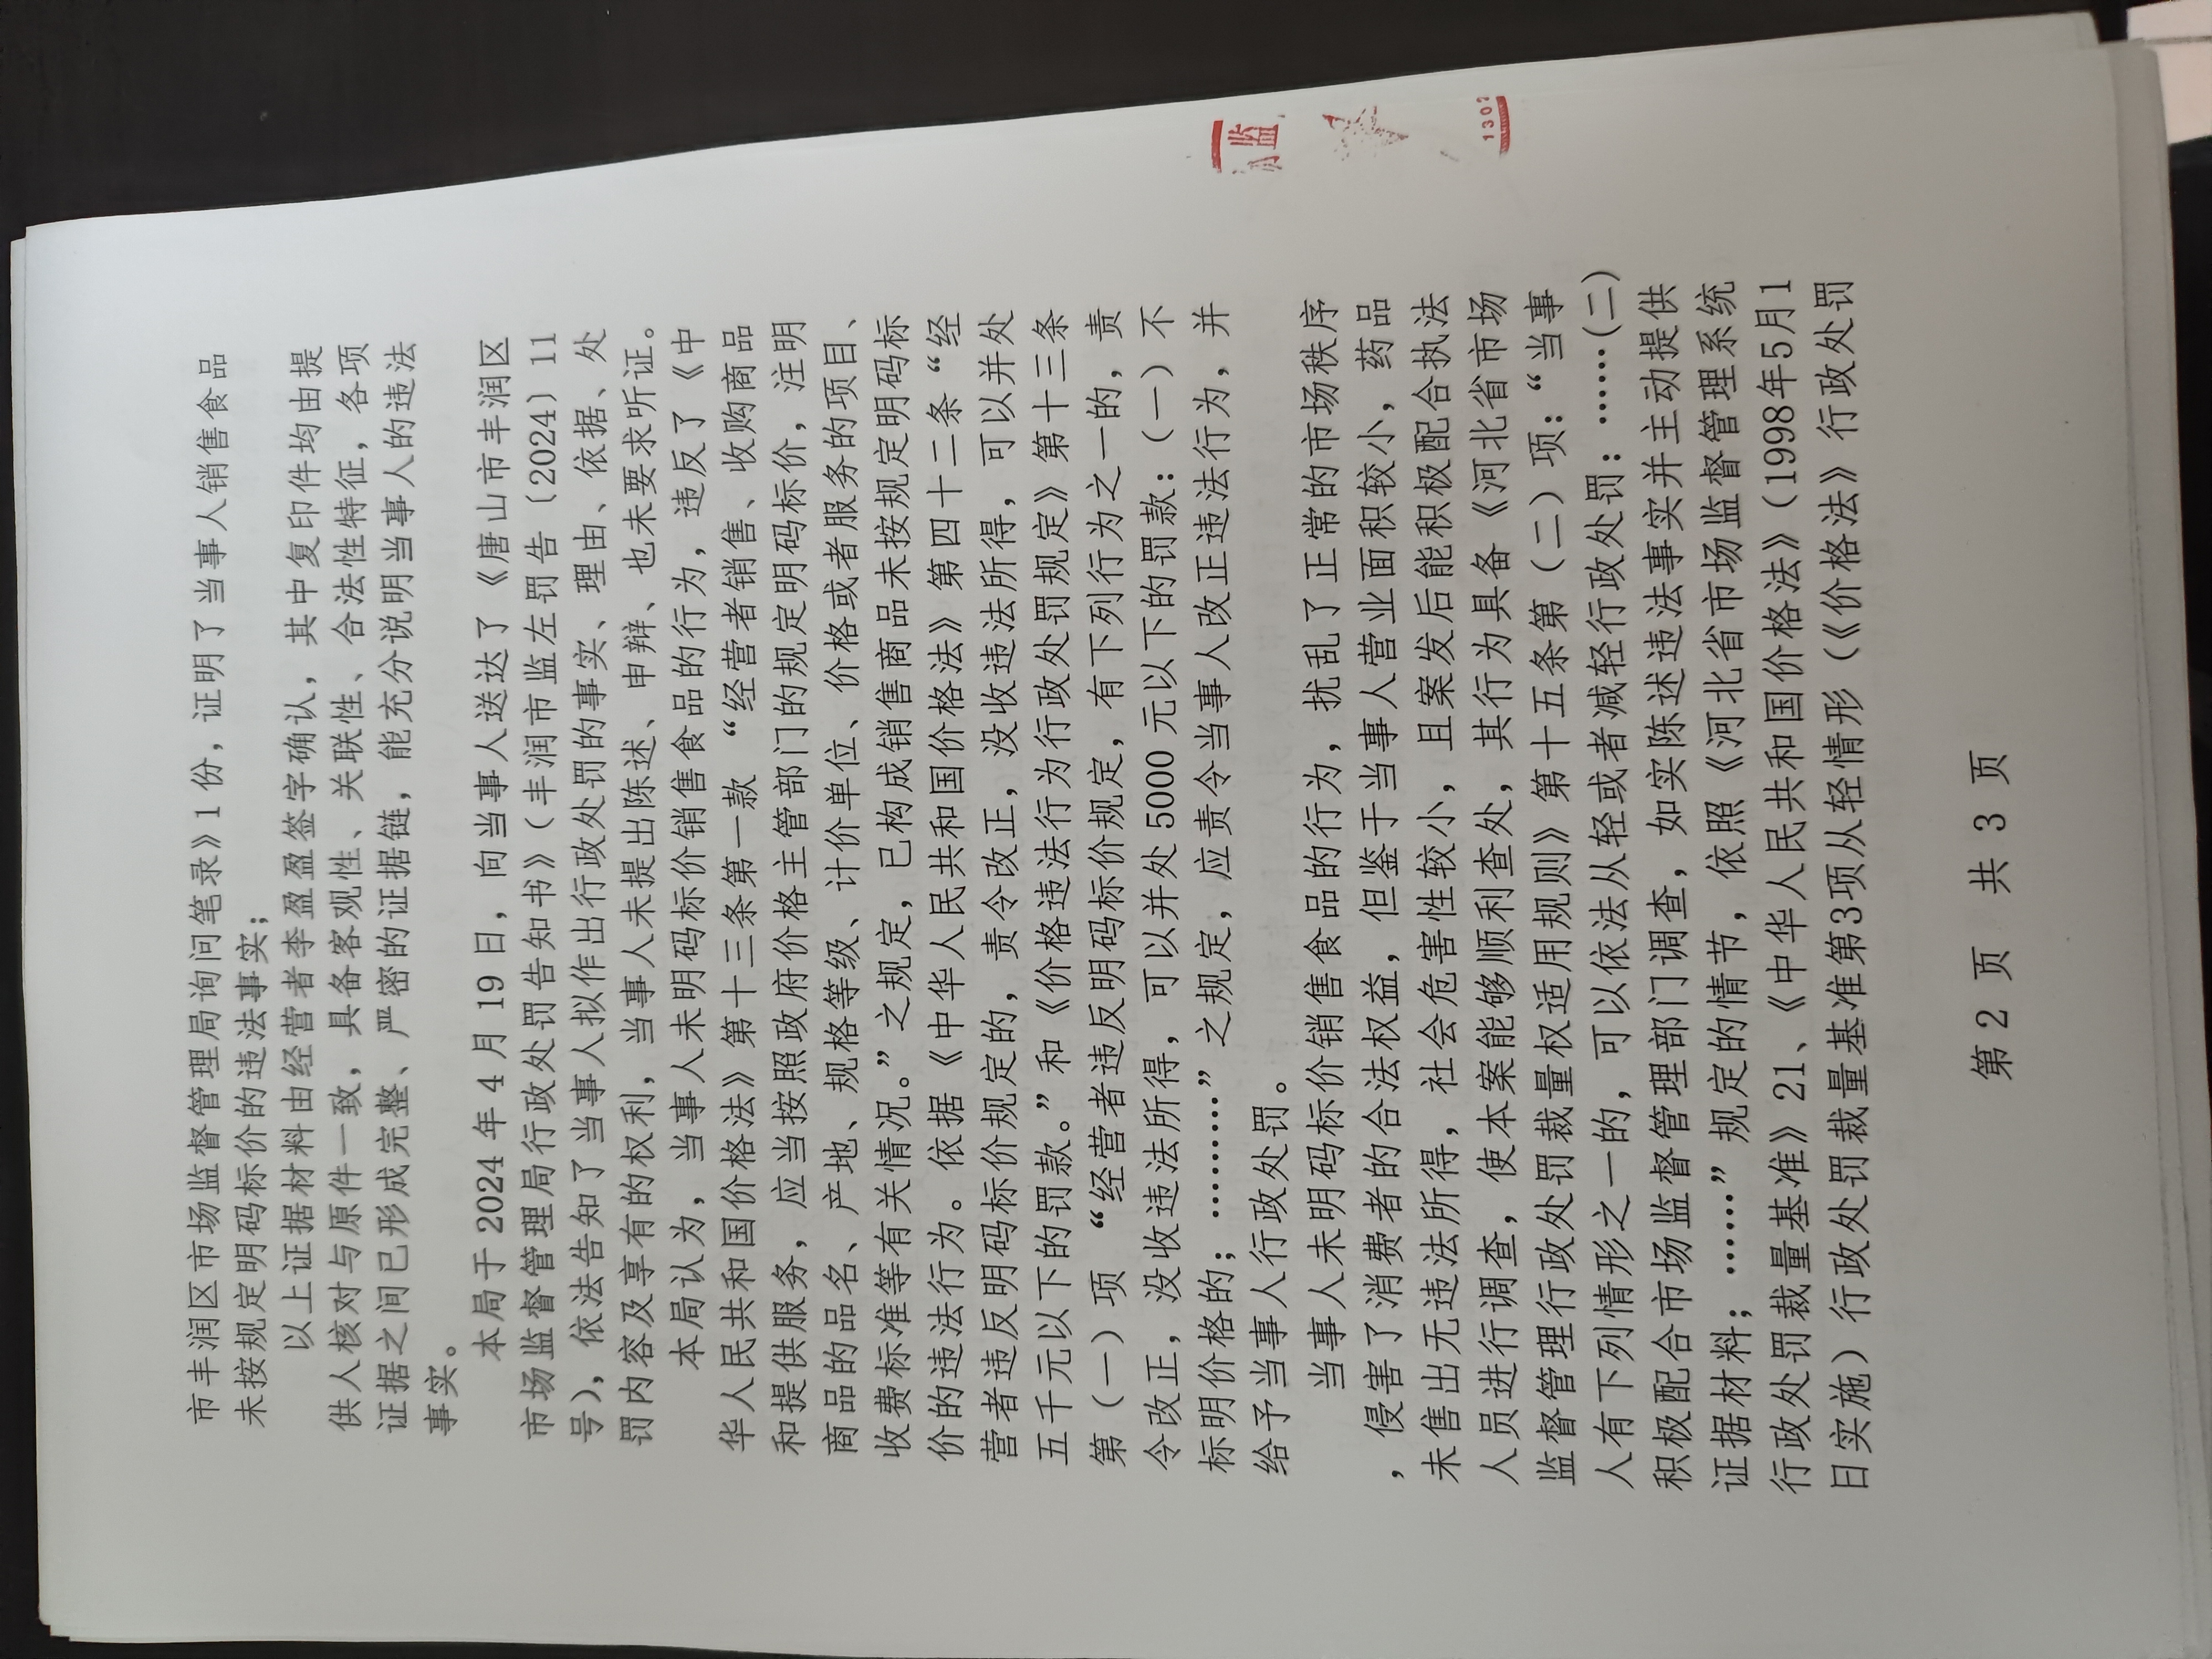 市丰润区市场监督管理局询问笔录》1 份，证明了当事人销售食品
未按规定明码标价的违法事实；
以上证据材料由经营者李盈盈签字确认，其中复印件均由提
供人核对与原件一致，具备客观性、关联性、合法性特征，各项
证据之间已形成完整、严密的证据链，能充分说明当事人的违法
事实。
本局于 2024 年 4 月 19 日，向当事人送达了《唐山市丰润区
市场监督管理局行政处罚告知书》（丰润市监左罚告〔2024〕11
号），依法告知了当事人拟作出行政处罚的事实、理由、依据、处
罚内容及享有的权利，当事人未提出陈述、申辩、也未要求听证。
本局认为，当事人未明码标价销售食品的行为，违反了《中
华人民共和国价格法》第十三条第一款 “经营者销售、收购商品
和提供服务，应当按照政府价格主管部门的规定明码标价，注明
商品的品名、产地、规格等级、计价单位、价格或者服务的项目、
收费标准等有关情况。”之规定，已构成销售商品未按规定明码标
价的违法行为。依据《中华人民共和国价格法》第四十二条“经
营者违反明码标价规定的，责令改正，没收违法所得，可以并处
五千元以下的罚款。”和《价格违法行为行政处罚规定》第十三条
第（一）项 “经营者违反明码标价规定，有下列行为之一的，责
令改正，没收违法所得，可以并处 5000 元以下的罚款：（一）不
标明价格的；…………”之规定，应责令当事人改正违法行为，并
给予当事人行政处罚。
当事人未明码标价销售食品的行为，扰乱了正常的市场秩序
，侵害了消费者的合法权益，但鉴于当事人营业面积较小，药品
未售出无违法所得，社会危害性较小，且案发后能积极配合执法
人员进行调查，使本案能够顺利查处，其行为具备《河北省市场
监督管理行政处罚裁量权适用规则》第十五条第（二）项：“当事
人有下列情形之一的，可以依法从轻或者减轻行政处罚：……（二）
积极配合市场监督管理部门调查，如实陈述违法事实并主动提供
证据材料；……”规定的情节，依照《河北省市场监督管理系统
行政处罚裁量基准》21、《中华人民共和国价格法》（1998年5月1
日实施）行政处罚裁量基准第3项从轻情形（《价格法》行政处罚
第 2 页 共 3 页
监
1302